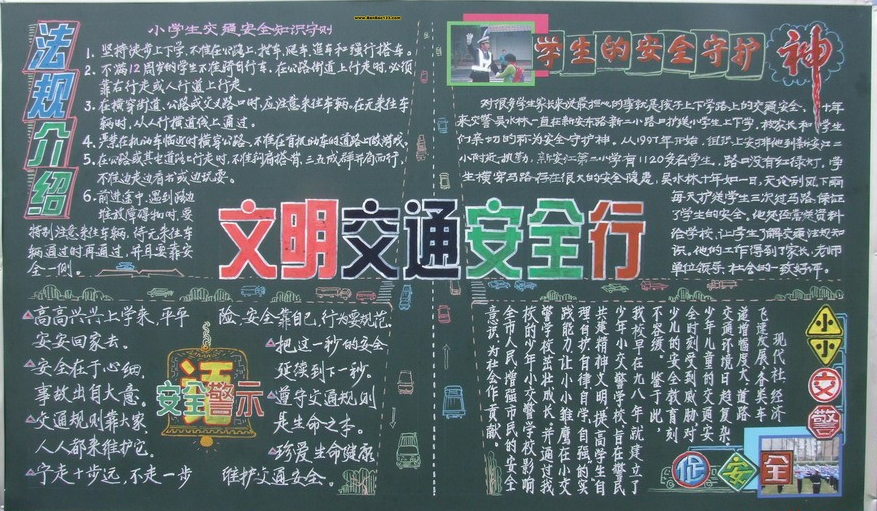 法规介绍
小学生交通安全知识守则
1、坚持徒步上下学,不准在公路上,扒车,爬车,追车和强行搭车。
2、不满12周岁的学生不准骑自行车。在公路街道上行走时,必须
靠右行走或人行道上行走。
3、在横穿街道、公路或交叉路口时,应注意来往车辆,在无来往车
辆时,从人行横道线上通过。
4、严禁在机动车临近时横穿公路、不准在有机动车的道路上做游戏。
5、在公路或其它道路上行走时,不准勾肩搭背、三五成群并肩而行,
不准边走边看书或边玩耍。
6、前进途中,遇到路边
堆放障碍物时,要
特别注意来往车辆,待无来往车
辆通过时再通过,并且要靠安
全一侧。
学生的安全守护神
对很多学生家长来说最担心的事就是孩子上下学路上的交通安全。十年
来交警吴水林一直在新安东路新二小路口护送小学生上下学,被家长和学生
们亲切的称为安全守护神。从1997年开始,组织上安排他到新安江二
小时班执勤,新安江第二小学有1120多名学生。路口没有红绿灯,学
生横穿马路存在很大的安全隐患,吴水林十年如一日,天论刮风下雨
每天护送学生三次过马路,保证
了学生的安全。他及还常送资料
给学校,让学生了解交通法规知
识。他的工作得到了家长、老师
单位领导、社会的一致好评。
文明交通安全行
高高兴兴上学来,平平
安安回家去。
安全在于心细,
事故出自大意。
交通规则靠大家
人人都来维护它。
宁走十步远,不走一步
险、安全靠自己,行为要规范
把这一秒的安全
延续到下一秒。
遵守交通规则
是生命之本。
珍爱生命健康
维护交通安全。
安全警示
小小交警
促安全
现代社会经济
飞速发展,各类车
逆增幅度大,道路
交通环境日趋复杂,
少年儿童的交通安
全时刻受到威胁,对
少儿的安全教育刻
不容缓。鉴于此
我校早在九八年就建立了
少年小交警学校,旨在警民
共建精神文明,提高学生自
理自护自律自学、自强的实
践能力,让小小雏鹰在小交
警学校茁壮成长,并通过我
校的少年小交警学校,影响
全市人民,增强市民的安全
意识,为社会作贡献。